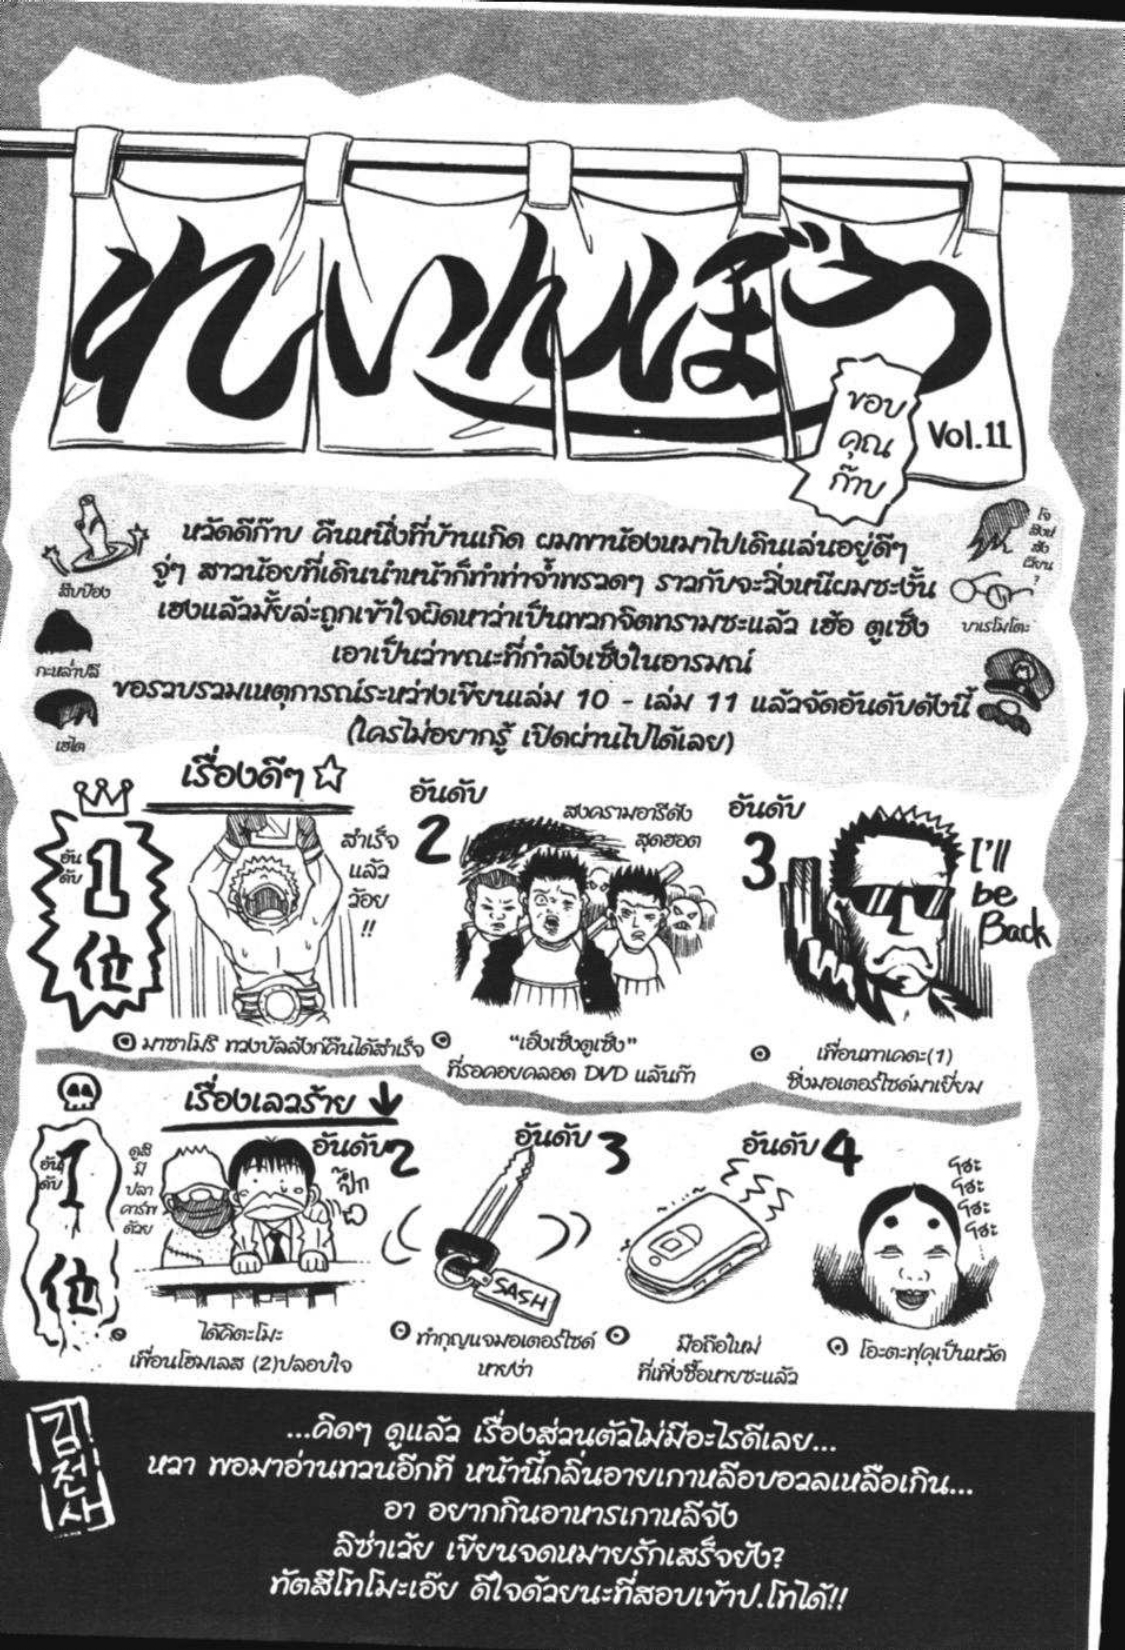 れいんぼう
ขอบ
คุณ
ก๊าบ
Vol.11
หวัดดีก๊าบ คืนหนึ่งที่บ้านเกิด ผมพาน้องหมาไปเดินเล่นอยู่ดีๆ
จู่ๆ สาวน้อยที่เดินนำหน้าก็ทำท่าจ้ำพรวดๆ ราวกับจะวิ่งหนีผมซะงั้น
เฮงแล้วมั้ยล่ะถูกเข้าใจผิดหาว่าเป็นพวกจิตทรามซะแล้ว เฮ้อ ตูเซ็ง
เอาเป็นว่าขณะที่กำลังเซ็งในอารมณ์
ขอรวบรวมเหตุการณ์ระหว่างเขียนเล่ม 10 - เล่ม 11 แล้วจัดอันดับดังนี้
(ใครไม่อยากรู้ เปิดผ่านไปได้เลย)
สิบป๋อง
กะหล่ำปลี
เฮไต
โจ
บาเรโมโตะ
เรื่องดีๆ ☆
อัน
ดับ
1
位
สำเร็จ
แล้ว
ว้อย
!!
มาซาโมริ ทวงบัลลังก์คืนได้สำเร็จ
อันดับ
2
สงครามอารีดัง
สุดฮอต
"เอ็งเซ็งตูเซ็ง"
ที่รอคอยคลอด DVD แล้นก๊า
อันดับ
3
I'll
be
Back
เพื่อนทาเคดะ(1)
ซิ่งมอเตอร์ไซด์มาเยี่ยม
เรื่องเลวร้าย ↓
อัน
ดับ
1
位
ดูสิ
มี
ปลา
คาร์พ
ด้วย
ได้คิตะโมะ
เพื่อนโฮมเลส (2)ปลอบใจ
อันดับ 2
ป๊ก
SASH
ทำกุญแจมอเตอร์ไซด์
หายง่า
อันดับ 3
มือถือใหม่
ที่เพิ่งซื้อหายซะแล้ว
อันดับ 4
โฮะ
โฮะ
โฮะ
โฮะ
โอะตะฟุคุเป็นหวัด
김전사
...คิดๆ ดูแล้ว เรื่องส่วนตัวไม่มีอะไรดีเลย...
หวา พอมาอ่านทวนอีกที หน้านี้กลิ่นอายเกาหลีอบอวลเหลือเกิน...
อา อยากกินอาหารเกาหลีจัง
ลิซ่าเว้ย เขียนจดหมายรักเสร็จยัง?
ทัตสึโทโมะเอ๊ย ดีใจด้วยนะที่สอบเข้าป.โทได้!!